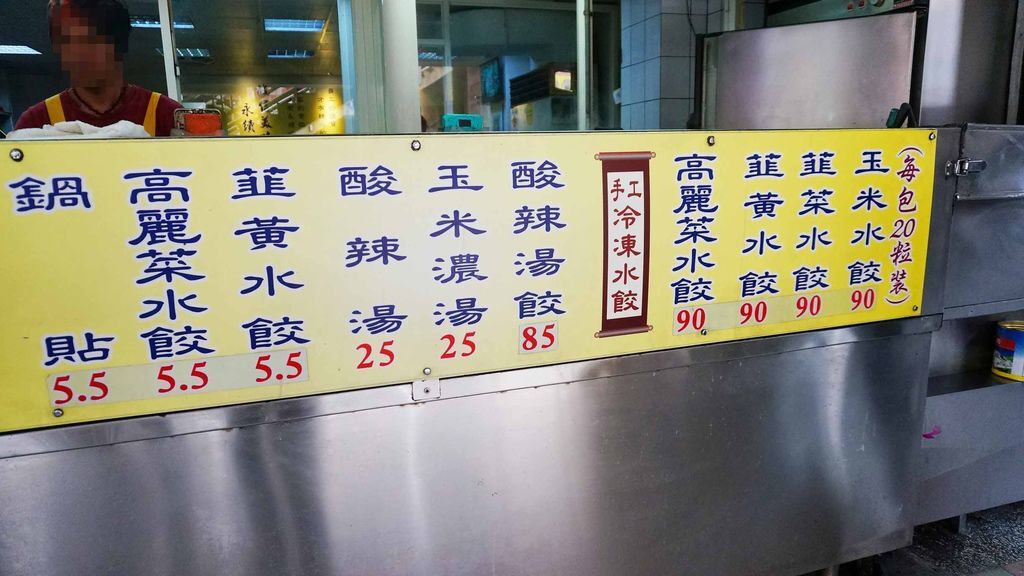 鍋貼 5.5
高麗菜水餃 5.5
韮黃水餃 5.5
酸辣湯 25
玉米濃湯 25
酸辣湯餃 85
手工冷凍水餃
高麗菜水餃 90
韮黃水餃 90
韮菜水餃 90
玉米水餃 90
(每包20粒裝)